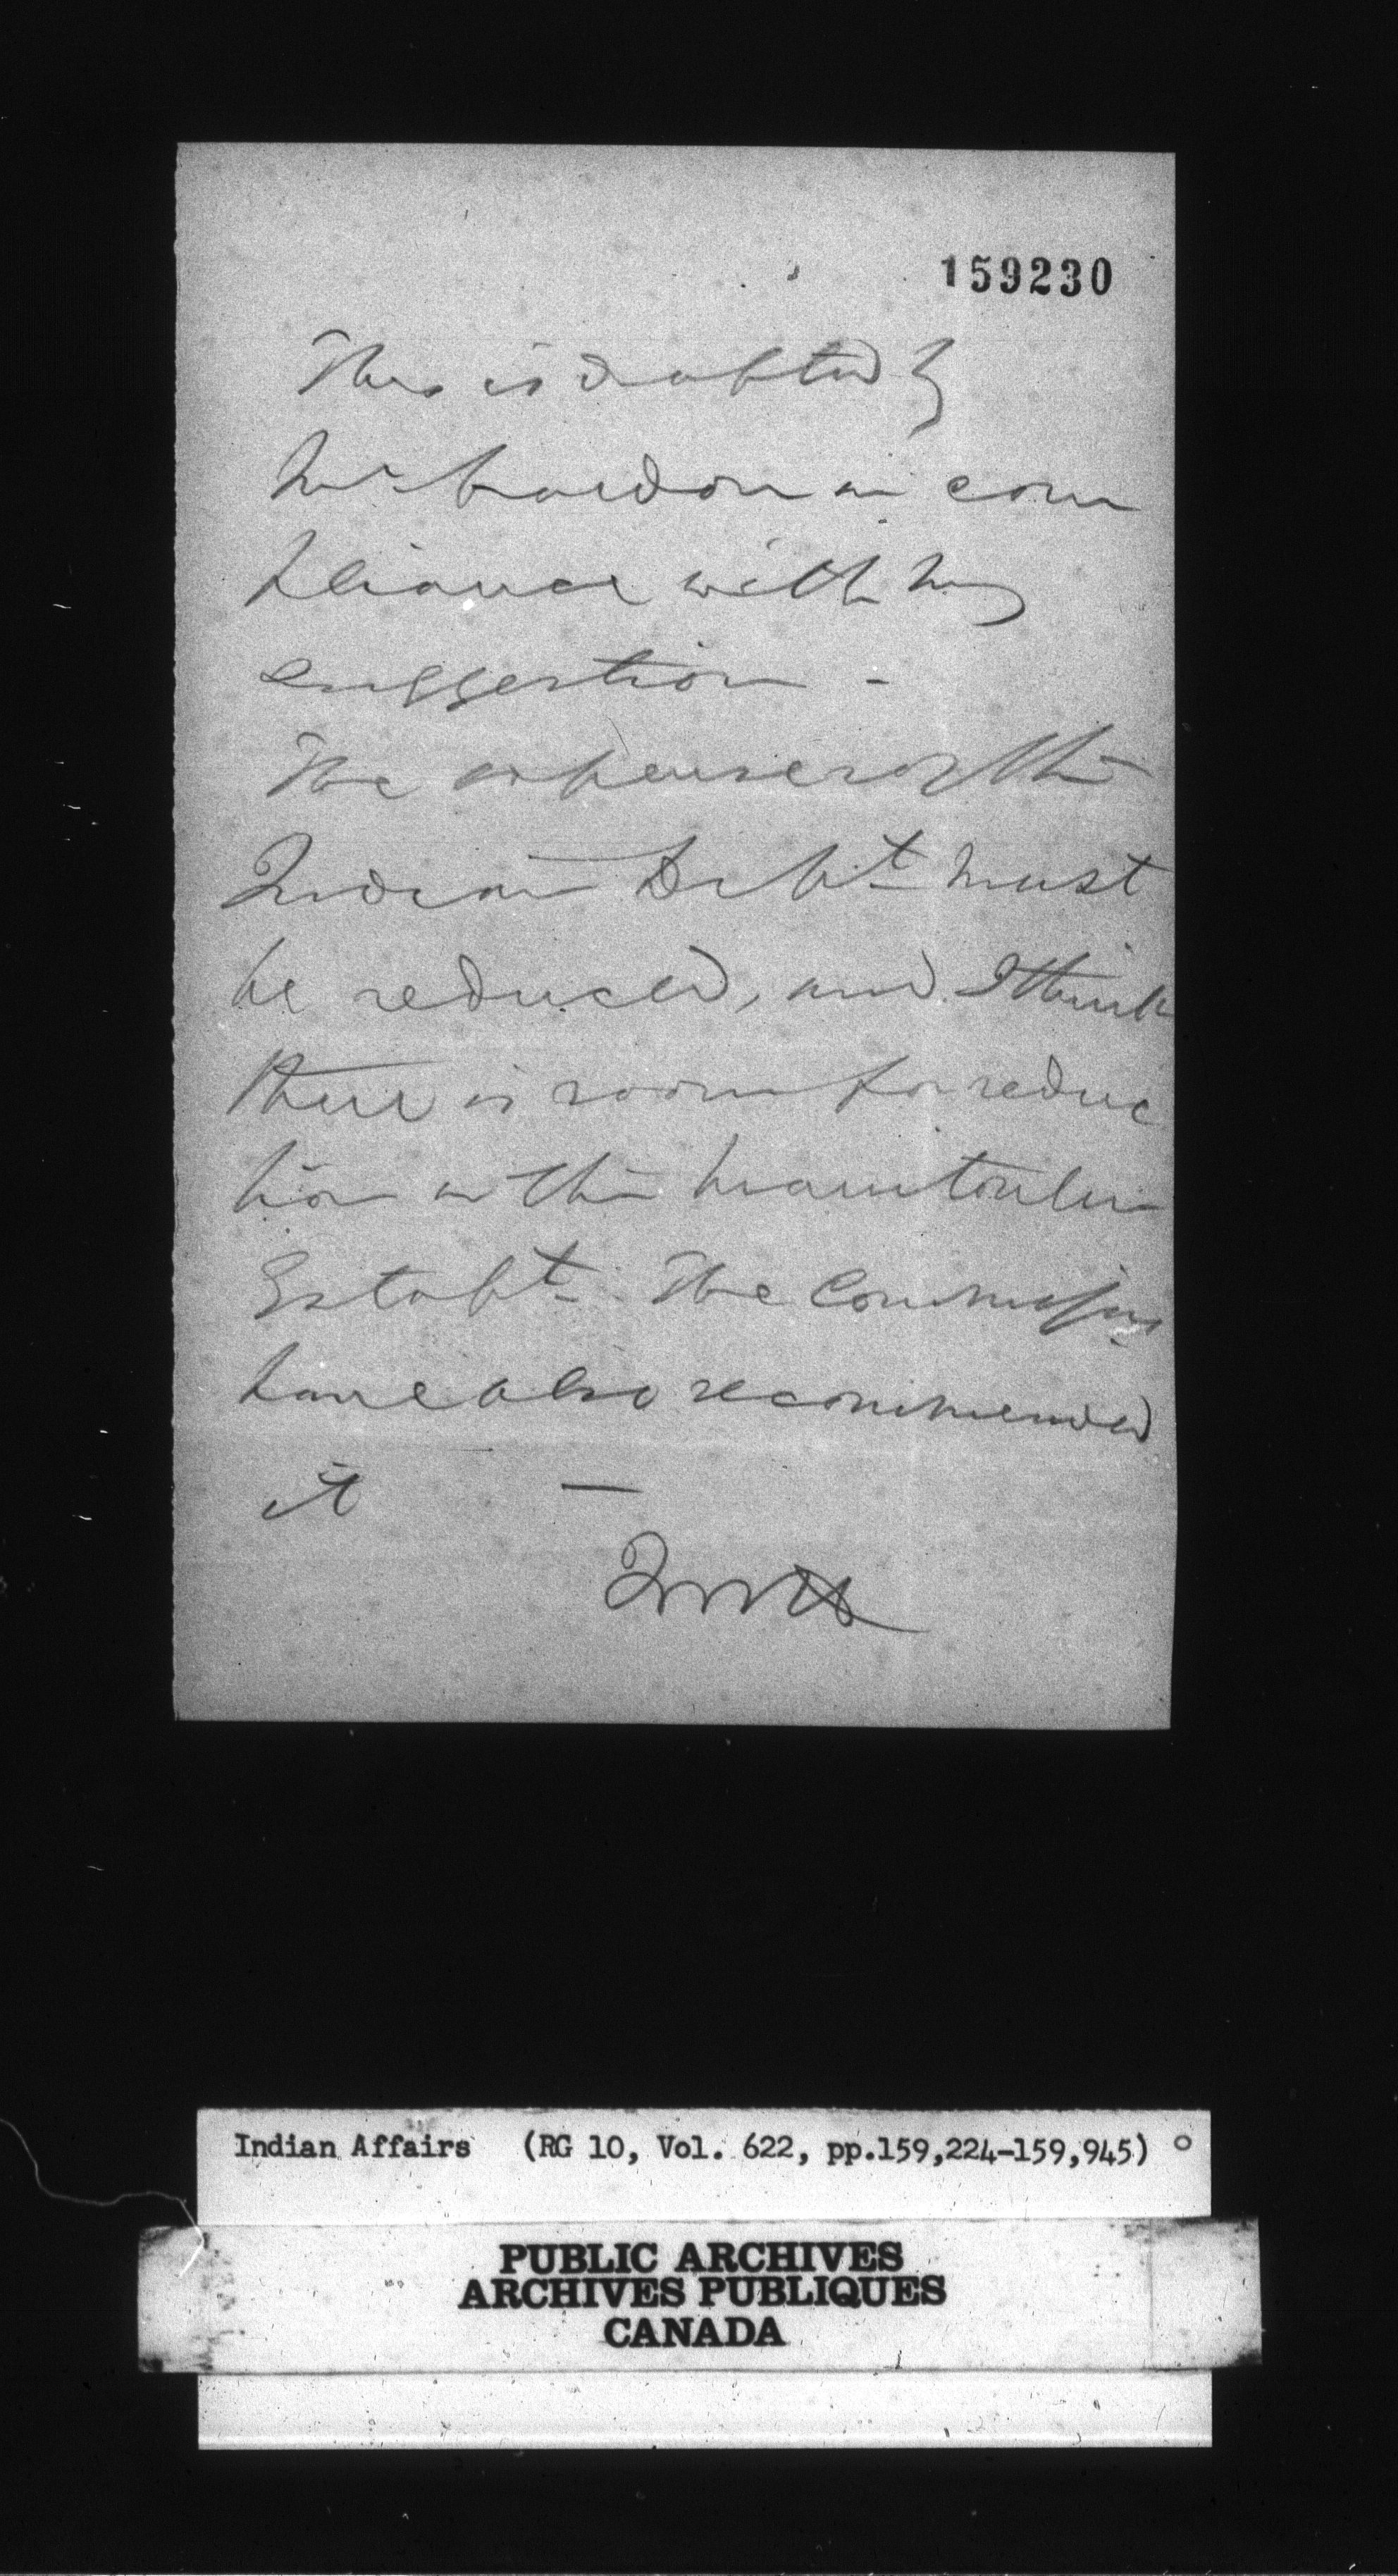 159230
This is drafted by
Mr in com
pliance with my
suggestion -
The expenses of the
Indian Dept must
be reduced, and I think
there is room for reduc
tion in the Manitoulin
Establt. The Commissrs
have also recommended
it —
Indian Affairs (RG 10, Vol. 622, pp.159,224-159,945)
PUBLIC ARCHIVES
ARCHIVES PUBLIQUES
CANADA